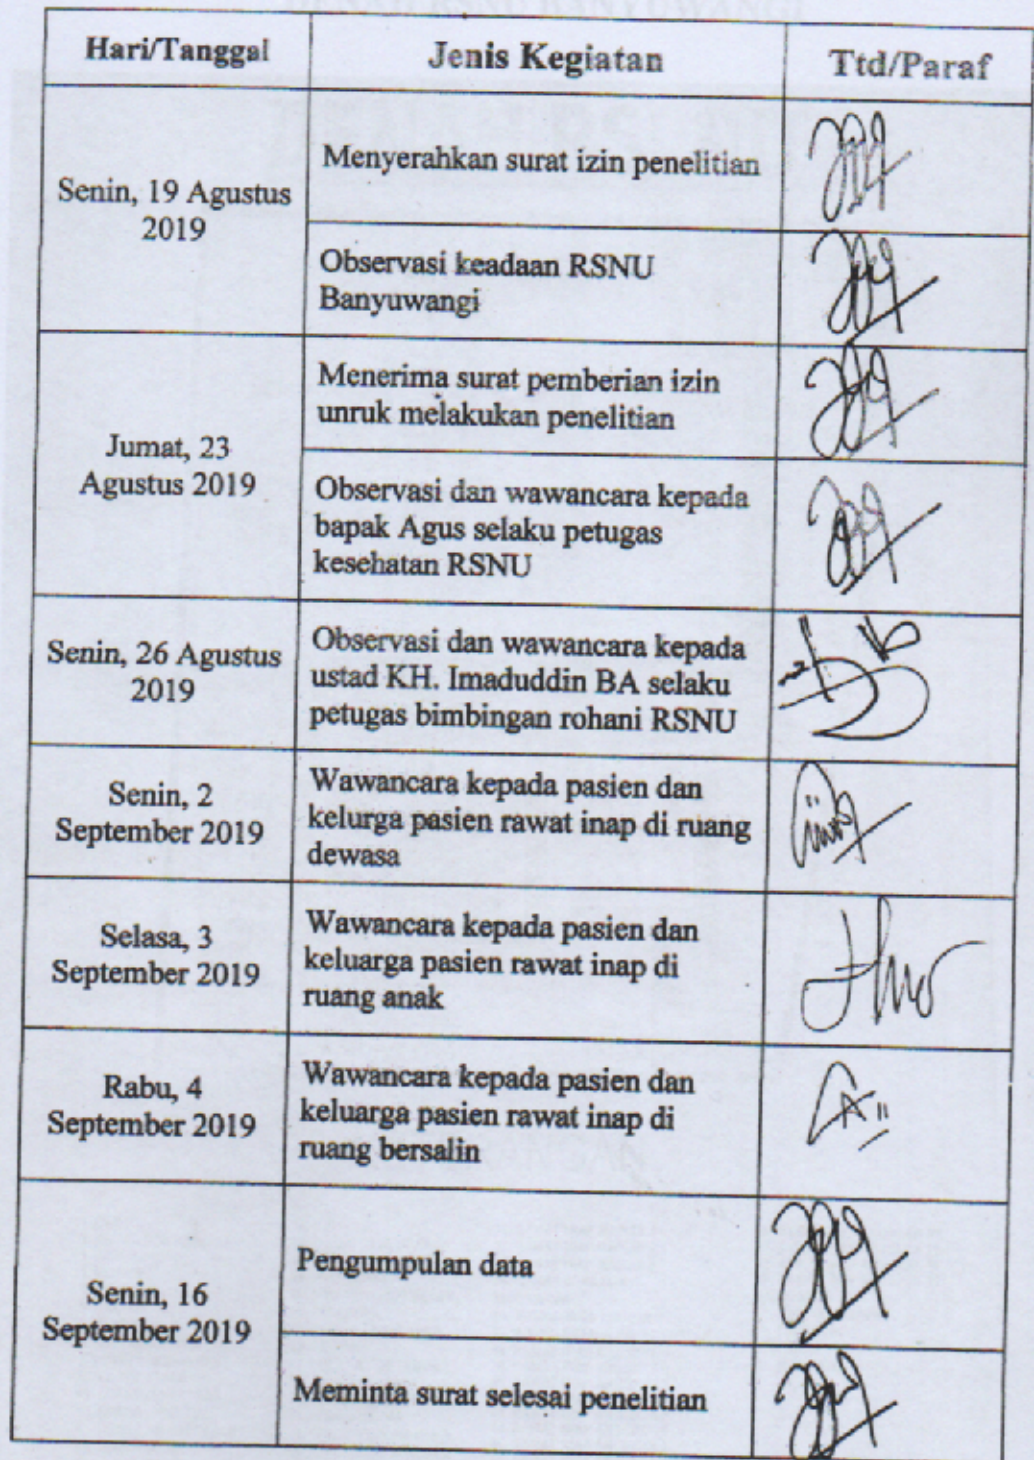 Hari/Tanggal
Jenis Kegiatan
Ttd/Paraf
Senin, 19 Agustus
2019
Menyerahkan surat izin penelitian
Observasi keadaan RSNU
Banyuwangi
Jumat, 23
Agustus 2019
Menerima surat pemberian izin
unruk melakukan penelitian
Observasi dan wawancara kepada
bapak Agus selaku petugas
kesehatan RSNU
Senin, 26 Agustus
2019
Observasi dan wawancara kepada
ustad KH. Imaduddin BA selaku
petugas bimbingan rohani RSNU
Senin, 2
September 2019
Wawancara kepada pasien dan
kelurga pasien rawat inap di ruang
dewasa
Selasa, 3
September 2019
Wawancara kepada pasien dan
keluarga pasien rawat inap di
ruang anak
Rabu, 4
September 2019
Wawancara kepada pasien dan
keluarga pasien rawat inap di
ruang bersalin
Senin, 16
September 2019
Pengumpulan data
Meminta surat selesai penelitian